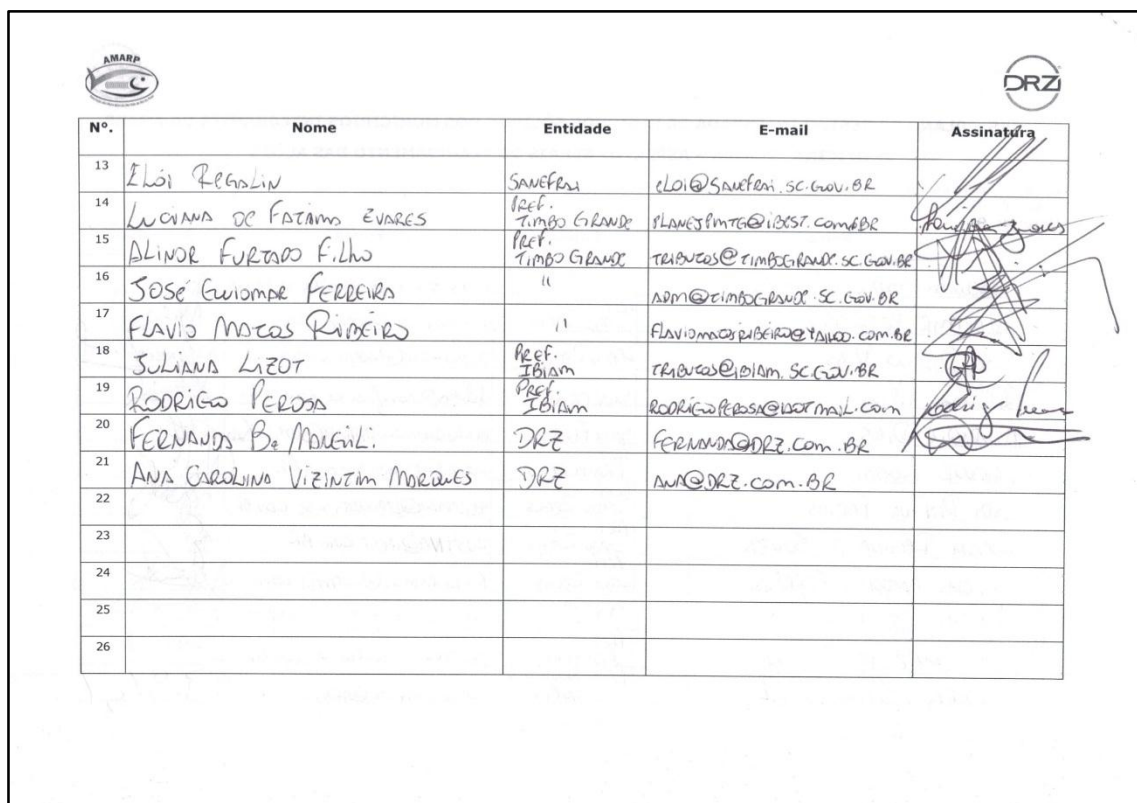 AMARP
DRZ
Nº. Nome Entidade E-mail Assinatura
13 ELÓI REGALIN SANEFRAI ELOI@SANEFRAI.SC.GOV.BR
14 LUCIANA DE FATIMA EVARES PREF. TIMBO GRANDE PLANEJPMTG@IBEST.COM.BR
15 ALINOR FURTADO FILHO PREF. TIMBO GRANDE TRIBUTOS@TIMBOGRANDE.SC.GOV.BR
16 JOSÉ GUIOMAR FERREIRA " ADM@TIMBOGRANDE.SC.GOV.BR
17 FLAVIO MATOS RIBEIRO " FLAVIOMATOSRIBEIRO@YAHOO.COM.BR
18 JULIANA LIZOT PREF. IBIAM TRIBUTOS@IBIAM.SC.GOV.BR
19 RODRIGO PEROSA PREF. IBIAM RODRIGOPEROSA@HOTMAIL.COM
20 FERNANDA B. DRZ FERNANDA@DRZ.COM.BR
21 ANA CAROLINA VIZINTIM MARQUES DRZ ANA@DRZ.COM.BR
22
23
24
25
26